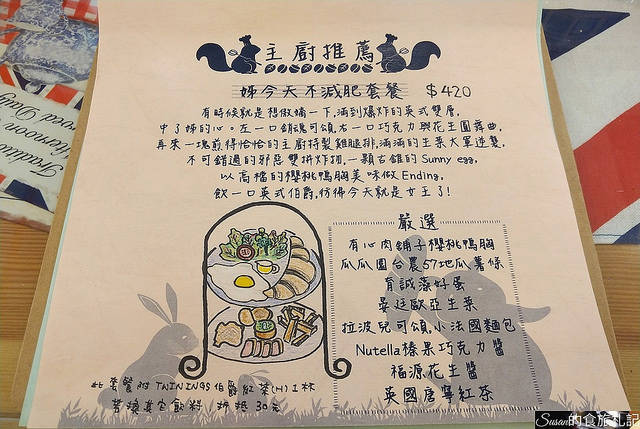 主廚推薦
姊今天不減肥套餐 $420
有時候就是想傲嬌一下,滿到爆炸的英式雙層,
中了姊的心。左一口銷魂可頌,右一口巧克力與花生圓舞曲,
再來一塊煎得恰恰的主廚特製雞腿排,滿滿的生菜大軍逆襲,
不可錯過的邪惡雙拼炸物,一顆古錐的 Sunny egg,
以高檔的櫻桃鴨胸美味做 Ending,
飲一口英式伯爵,彷彿今天就是女王了!
嚴選
有心肉舖子櫻桃鴨胸
瓜瓜園台農57地瓜薯條
育誠藻好蛋
宴廷歐亞生菜
拉波兒可頌,小法國麵包
Nutella榛果巧克力醬
福源花生醬
英國唐寧紅茶
此套餐附 TWININGS 伯爵紅茶(H)1杯
若換其它飲料 折抵 30元
Traditional
Afternoon
Susan的食旅札記